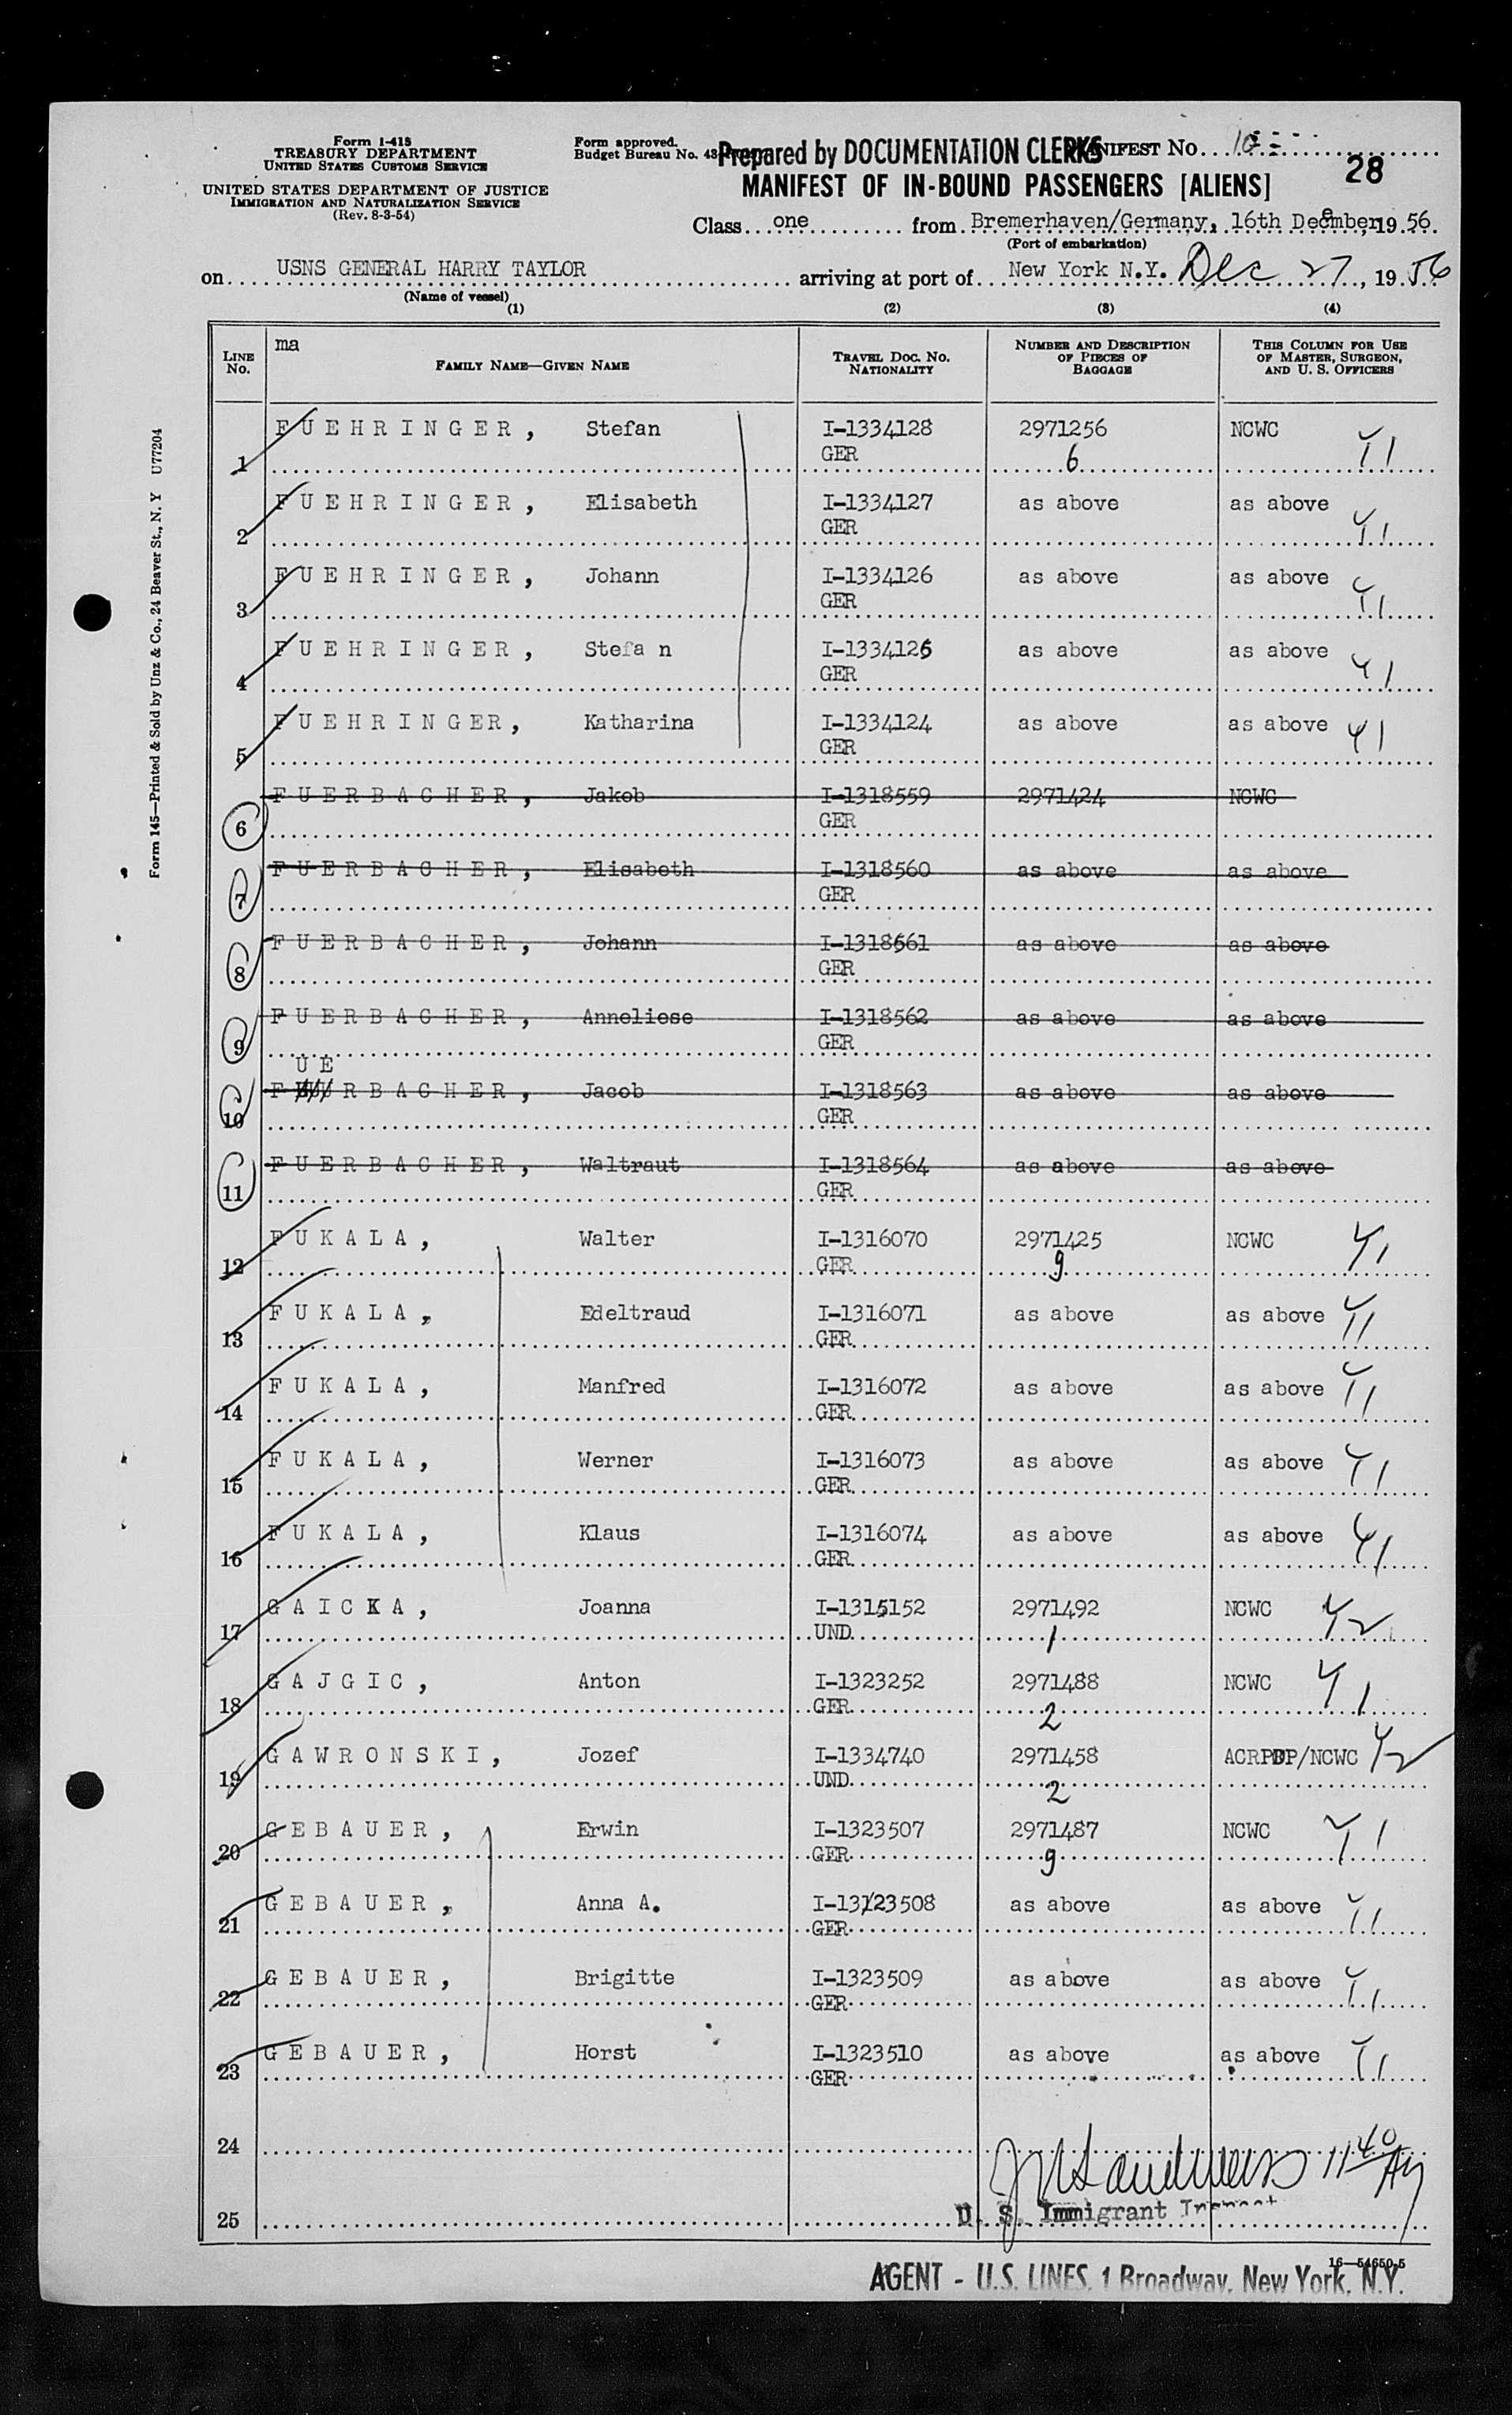 Form I-418
TREASURY DEPARTMENT
UNITED STATES CUSTOMS SERVICE
UNITED STATES DEPARTMENT OF JUSTICE
IMMIGRATION AND NATURALIZATION SERVICE
(Rev. 8-3-54)
Form approved.
Budget Bureau No. 43
Prepared by DOCUMENTATION CLERKS
MANIFEST No.
28
MANIFEST OF IN-BOUND PASSENGERS [ALIENS]
Class one from Bremerhaven/Germany, 16th December, 1956.
(Port of embarkation)
on USNS GENERAL HARRY TAYLOR arriving at port of New York N.Y. Dec 27, 1956
(Name of vessel)
(1) (2) (3) (4)
LINE No. ma FAMILY NAME—GIVEN NAME TRAVEL DOC. No. NATIONALITY NUMBER AND DESCRIPTION OF PIECES OF BAGGAGE THIS COLUMN FOR USE OF MASTER, SURGEON, AND U. S. OFFICERS
1 FUEHRINGER, Stefan I-1334128 2971256 NCWC
GER 6
2 FUEHRINGER, Elisabeth I-1334127 as above as above
GER
3 FUEHRINGER, Johann I-1334126 as above as above
GER
4 FUEHRINGER, Stefa n I-1334125 as above as above
GER
5 FUEHRINGER, Katharina I-1334124 as above as above
GER
6 FUERBACHER, Jakob I-1318559 2971424 NCWC
GER
7 FUERBACHER, Elisabeth I-1318560 as above as above
GER
8 FUERBACHER, Johann I-1318561 as above as above
GER
9 FUERBACHER, Anneliese I-1318562 as above as above
GER
UE
10 FUERBACHER, Jacob I-1318563 as above as above
GER
11 FUERBACHER, Waltraut I-1318564 as above as above
GER
12 FUKALA, Walter I-1316070 2971425 NCWC
GER 9
13 FUKALA, Edeltraud I-1316071 as above as above
GER
14 FUKALA, Manfred I-1316072 as above as above
GER
15 FUKALA, Werner I-1316073 as above as above
GER
16 FUKALA, Klaus I-1316074 as above as above
GER
17 GAICKA, Joanna I-1315152 2971492 NCWC
UND 1
18 GAJGIC, Anton I-1323252 2971488 NCWC
GER 2
19 GAWRONSKI, Jozef I-1334740 2971458 ACRPDP/NCWC
UND 2
20 GEBAUER, Erwin I-1323507 2971487 NCWC
GER 9
21 GEBAUER, Anna A. I-1323508 as above as above
GER
22 GEBAUER, Brigitte I-1323509 as above as above
GER
23 GEBAUER, Horst I-1323510 as above as above
GER
24
25
U. S. Immigrant
16—54650-5
AGENT - U.S. LINES, 1 Broadway, New York, N.Y.
Form 145—Printed & Sold by Unz & Co., 24 Beaver St., N. Y U77204